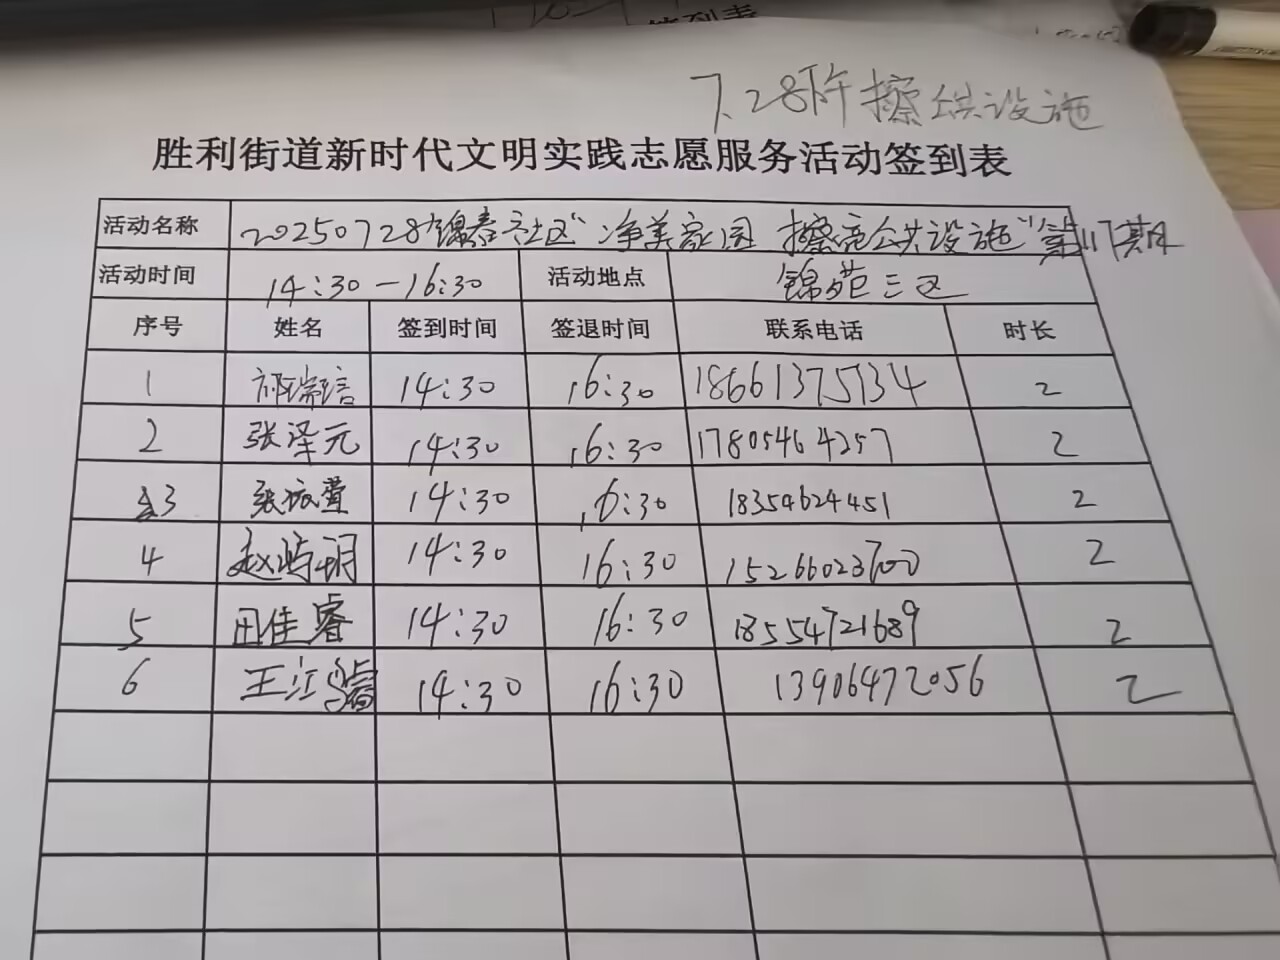 签到表
7.28下午擦公共设施
胜利街道新时代文明实践志愿服务活动签到表
活动名称 20250728"锦春社区"净美家园 擦亮公共设施"第117期
活动时间 14:30-16:30 活动地点 锦苑三区
序号 姓名 签到时间 签退时间 联系电话 时长
1 14:30 16:30 18661375134 2
2 张泽元 14:30 16:30 17805464257 2
3 张振萱 14:30 16:30 18354624451 2
4 赵屿玥 14:30 16:30 15266023700 2
5 田佳睿 14:30 16:30 18554721689 2
6 王江 14:30 16:30 13906472056 2